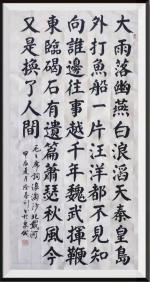 大雨落幽燕白浪滔天秦皇島
外打魚船一片汪洋都不見知
向誰邊往事越千年魏武揮鞭
東臨碣石有遺篇蕭瑟秋風今
又是換了人間
毛主席詞浪淘沙北戴河